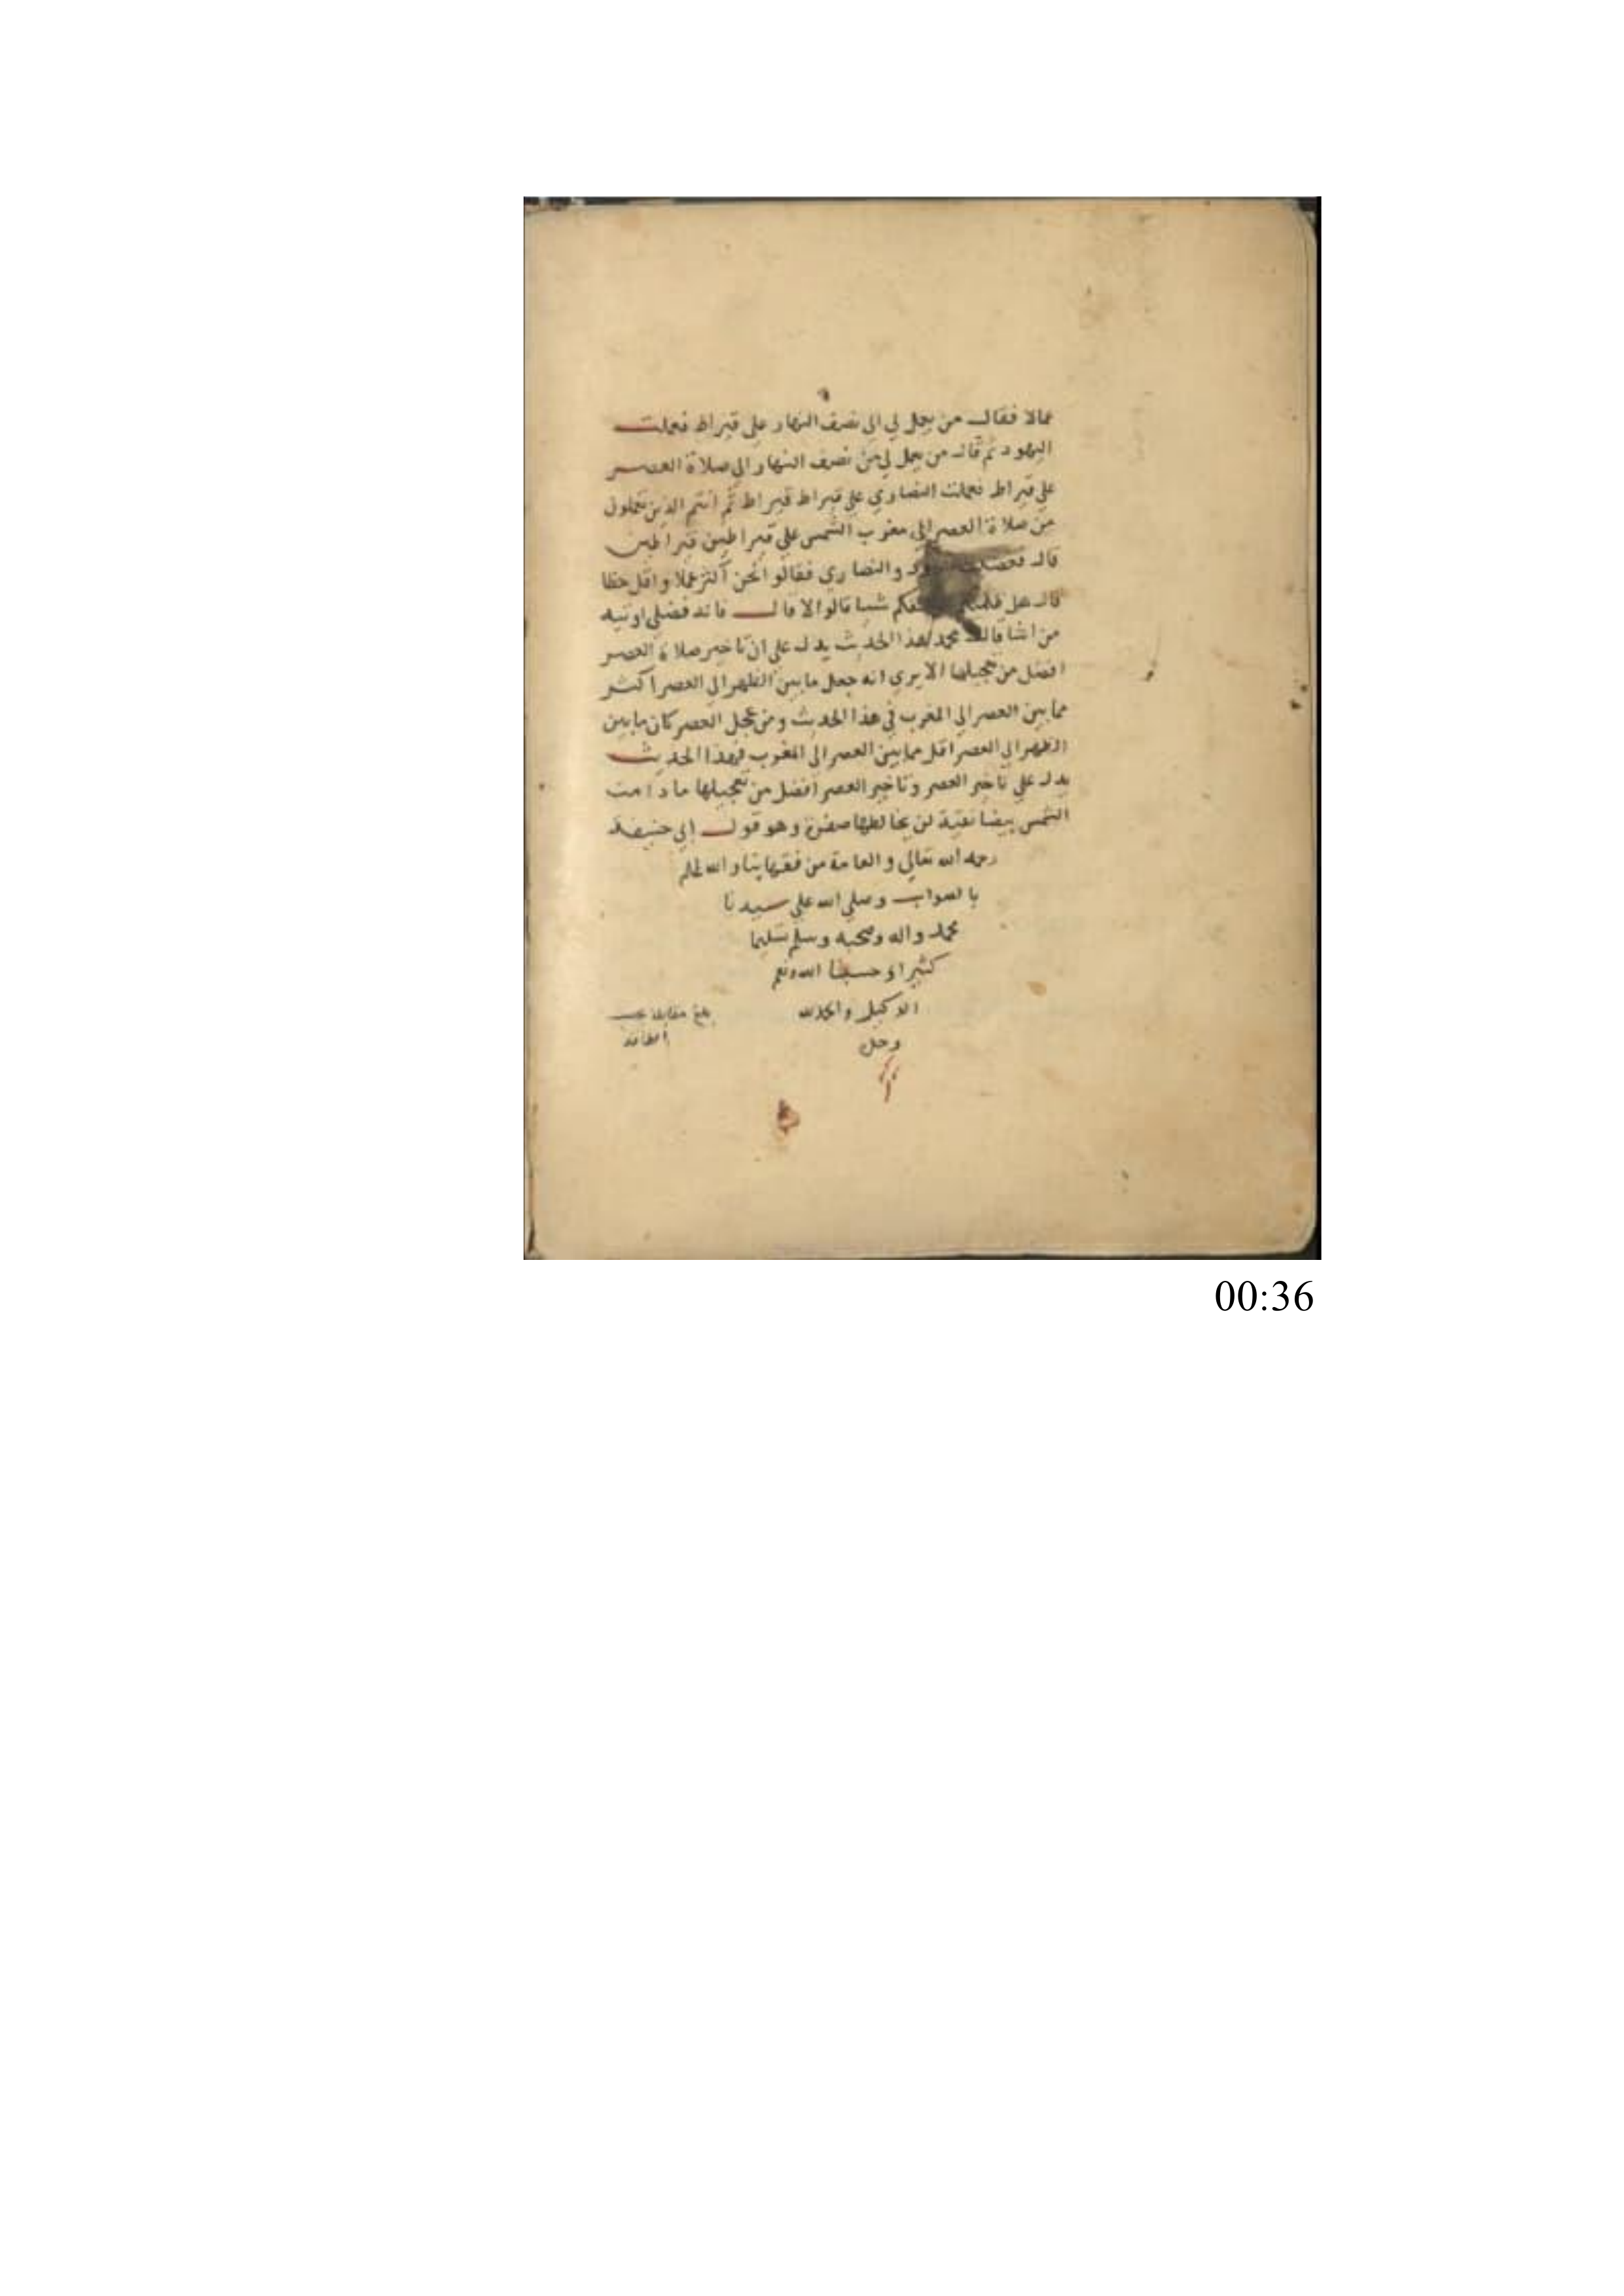 عمالا فقال من يعمل لي الى نصف النهار على قيراط فعملت
اليهود ثم قال من يعمل لي من نصف النهار الي صلاة العصر
علي قيراط فعملت النصاري علي قيراط قيراط ثم انتم الذين تعملون
من صلاة العصر الي مغرب الشمس علي قيراطين قيراطين
قال فغضبت والنصاري فقالوا نحن اكثر عملا واقل عطا
قال هل ظلمتكم شيا قالوا لا قال فانه فضلي اوتيه
من اشا قال محمد هذا الحديث يدل علي ان تاخير صلاة العصر
افضل من تعجيلها الا يري انه جعل ما بين الظهر الي العصر اكثر
مما بين العصر الي المغرب في هذا الحديث ومن عجل العصر كان ما بين
الظهر الي العصر اقل مما بين العصر الي المغرب فهذا الحديث
يدل علي تاخير العصر وتاخير العصر افضل من تعجيلها ما دامت
الشمس بيضا نقية لن يخالطها صفرة وهو قول ابي حنيفة
رحمه الله تعالي والعامة من فقهاينا والله اعلم
بالصواب وصلي الله علي سيدنا
محمد واله وصحبه وسلم تسليما
كثيرا وحسبنا الله ونعم
الوكيل والحمد لله
وحده
بلغ مقابلة حسب
الطاقة
00:36